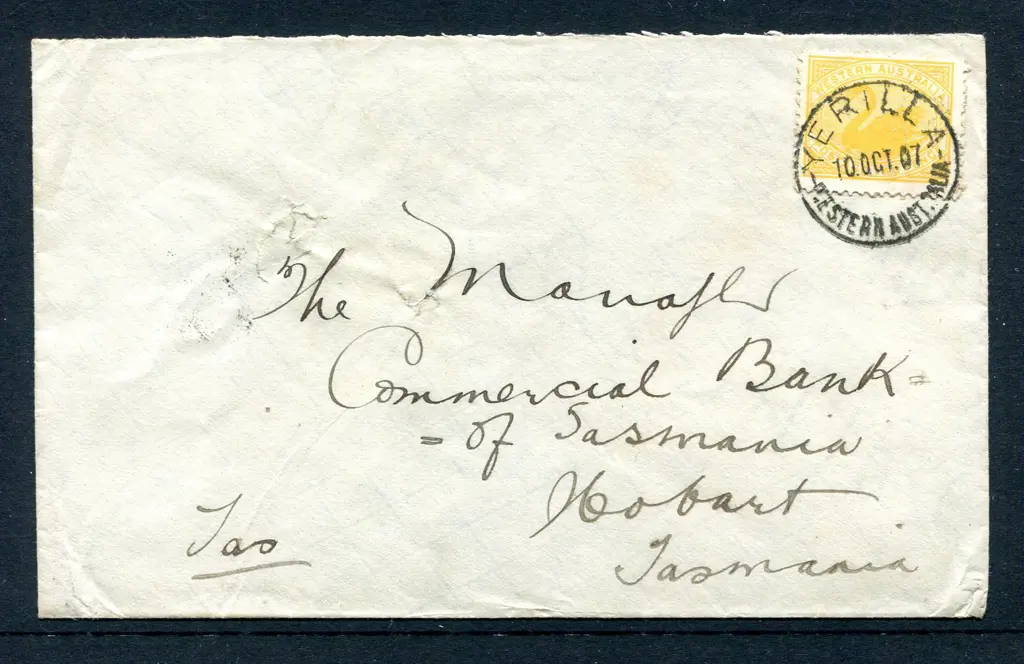 WESTERN AUSTRALIA
YERILLA
10.OCT.07
WESTERN AUSTRALIA
The Manager
Commercial Bank =
= of Tasmania
Hobart
Tas
Tasmania